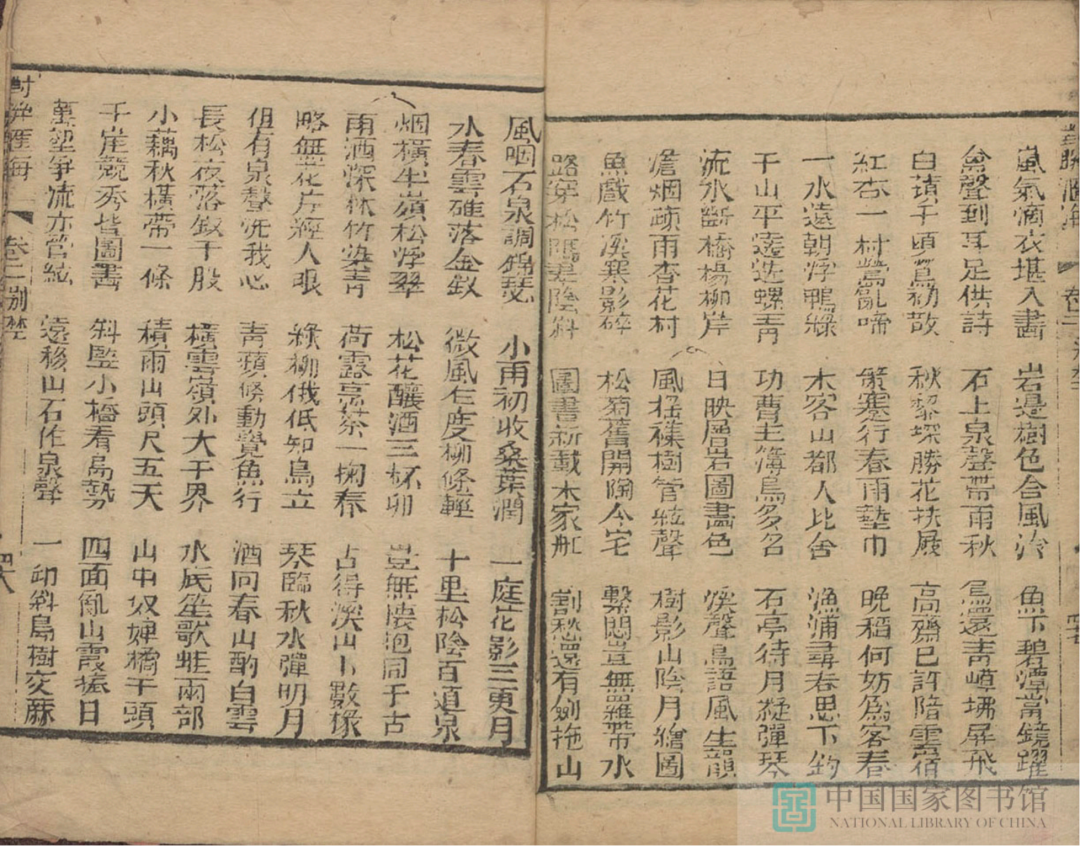 嵐氣滴衣堪入畫 岩邊樹色含風冷 魚下碧潭當鏡躍
禽聲到耳足供詩 石上泉聲帶雨秋 鳥還青嶂拂屏飛
白蘋千頃鷺初散 秋黎堞勝花扶屐 高齋已許陪雲宿
紅杏一村鶯亂啼 策蹇行春雨墊巾 晚稻何妨為客舂
一水遠朝浮鴨綠 木客山都人比舍 漁浦尋春思下釣
千山平遠迭螺青 功曹主簿鳥多名 石亭待月凝彈琴
流水斷橋楊柳岸 日映層岩圖畫色 溪聲鳥語風生韻
澹烟疎雨杏花村 風搖襍樹管絃聲 樹影山陰月繪圖
魚戲竹溪寒影碎 松菊舊開陶令宅 繫悶豈無羅帶水
路穿松隖翠陰斜 圖書新載米家舡 割愁還有劍拖山
風咽石泉調錦瑟 小雨初收桑葉潤 一庭花影三更月
水舂雲碓落金釵 微風乍度柳條輕 十里松陰百道泉
烟橫半嶺松浮翠 松花釀酒三杯卯 豈無陵泡同千古
雨洒深林竹染青 荷露烹茶一掬春 占得溪山卜數椽
略無花片經人眼 綠柳俄低知鳥立 琴臨秋水彈明月
但有泉聲洗我心 青蘋倏動覺魚行 酒向春山酌白雲
長松夜落釵千股 橫雲嶺外大千界 水底笙歌蛙兩部
小藕秋橫帶一條 積雨山頭尺五天 山中奴婢橘千頭
千崖競秀皆圖書 斜監小橋看島勢 四面亂山霞捧日
萬壑爭流亦管絃 遠移山石作泉聲 一印斜島樹交蔴
對類雅海 卷二 別墅